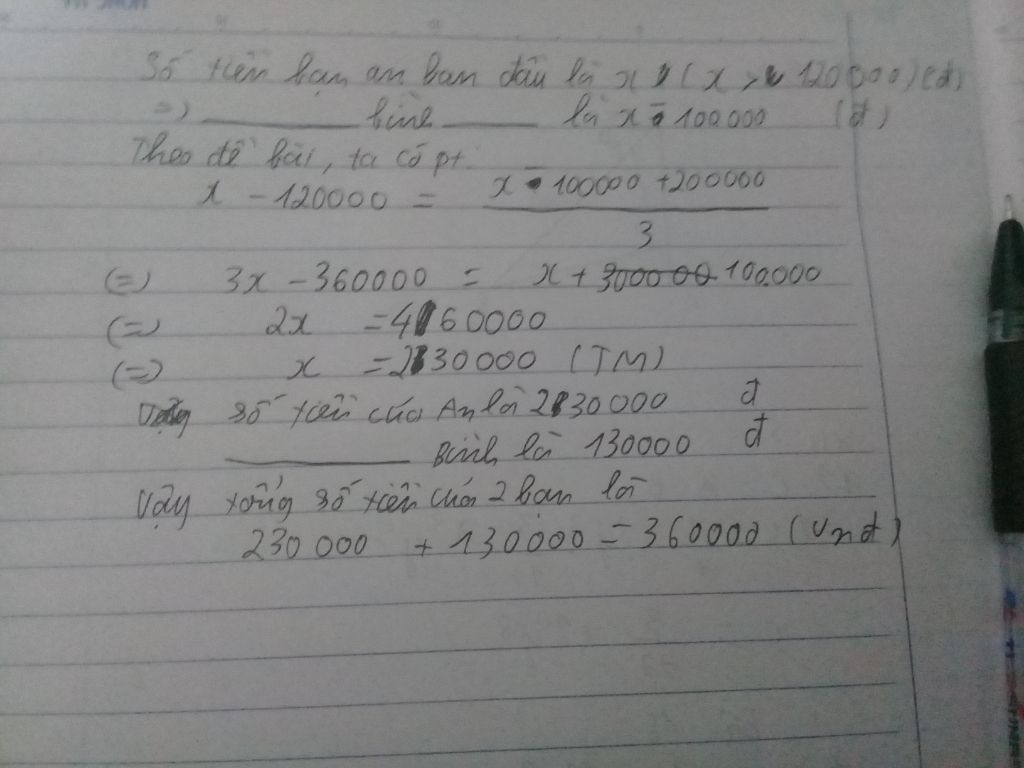 Số tiền bạn an ban đầu là x (x > 120000) (đ)
=) ______ bình ______ là x - 100000 (đ)
Theo đề bài, ta có pt
x - 120000 = \frac{x - 100000 + 200000}{3}
(=) 3x - 360000 = x + 300000 100000
(=) 2x = 460000
(=) x = 230000 (TM)
Vậy số tiền của An là 230000 đ
______ Bình là 130000 đ
Vậy tổng số tiền của 2 bạn là
230 000 + 130000 = 360000 (Vnđ)